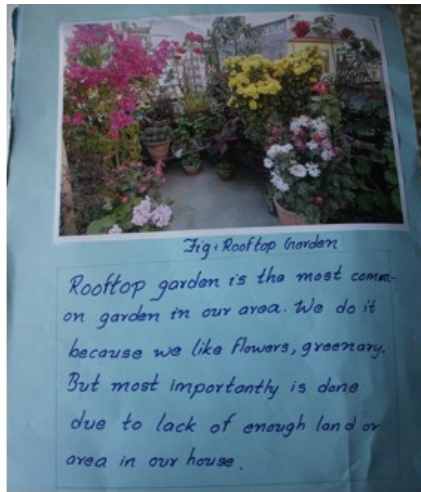 Fig: Rooftop Garden
Rooftop garden is the most comm-
on garden in our area. We do it
because we like flowers, greenary.
But most importantly is done
due to lack of enough land or
area in our house.